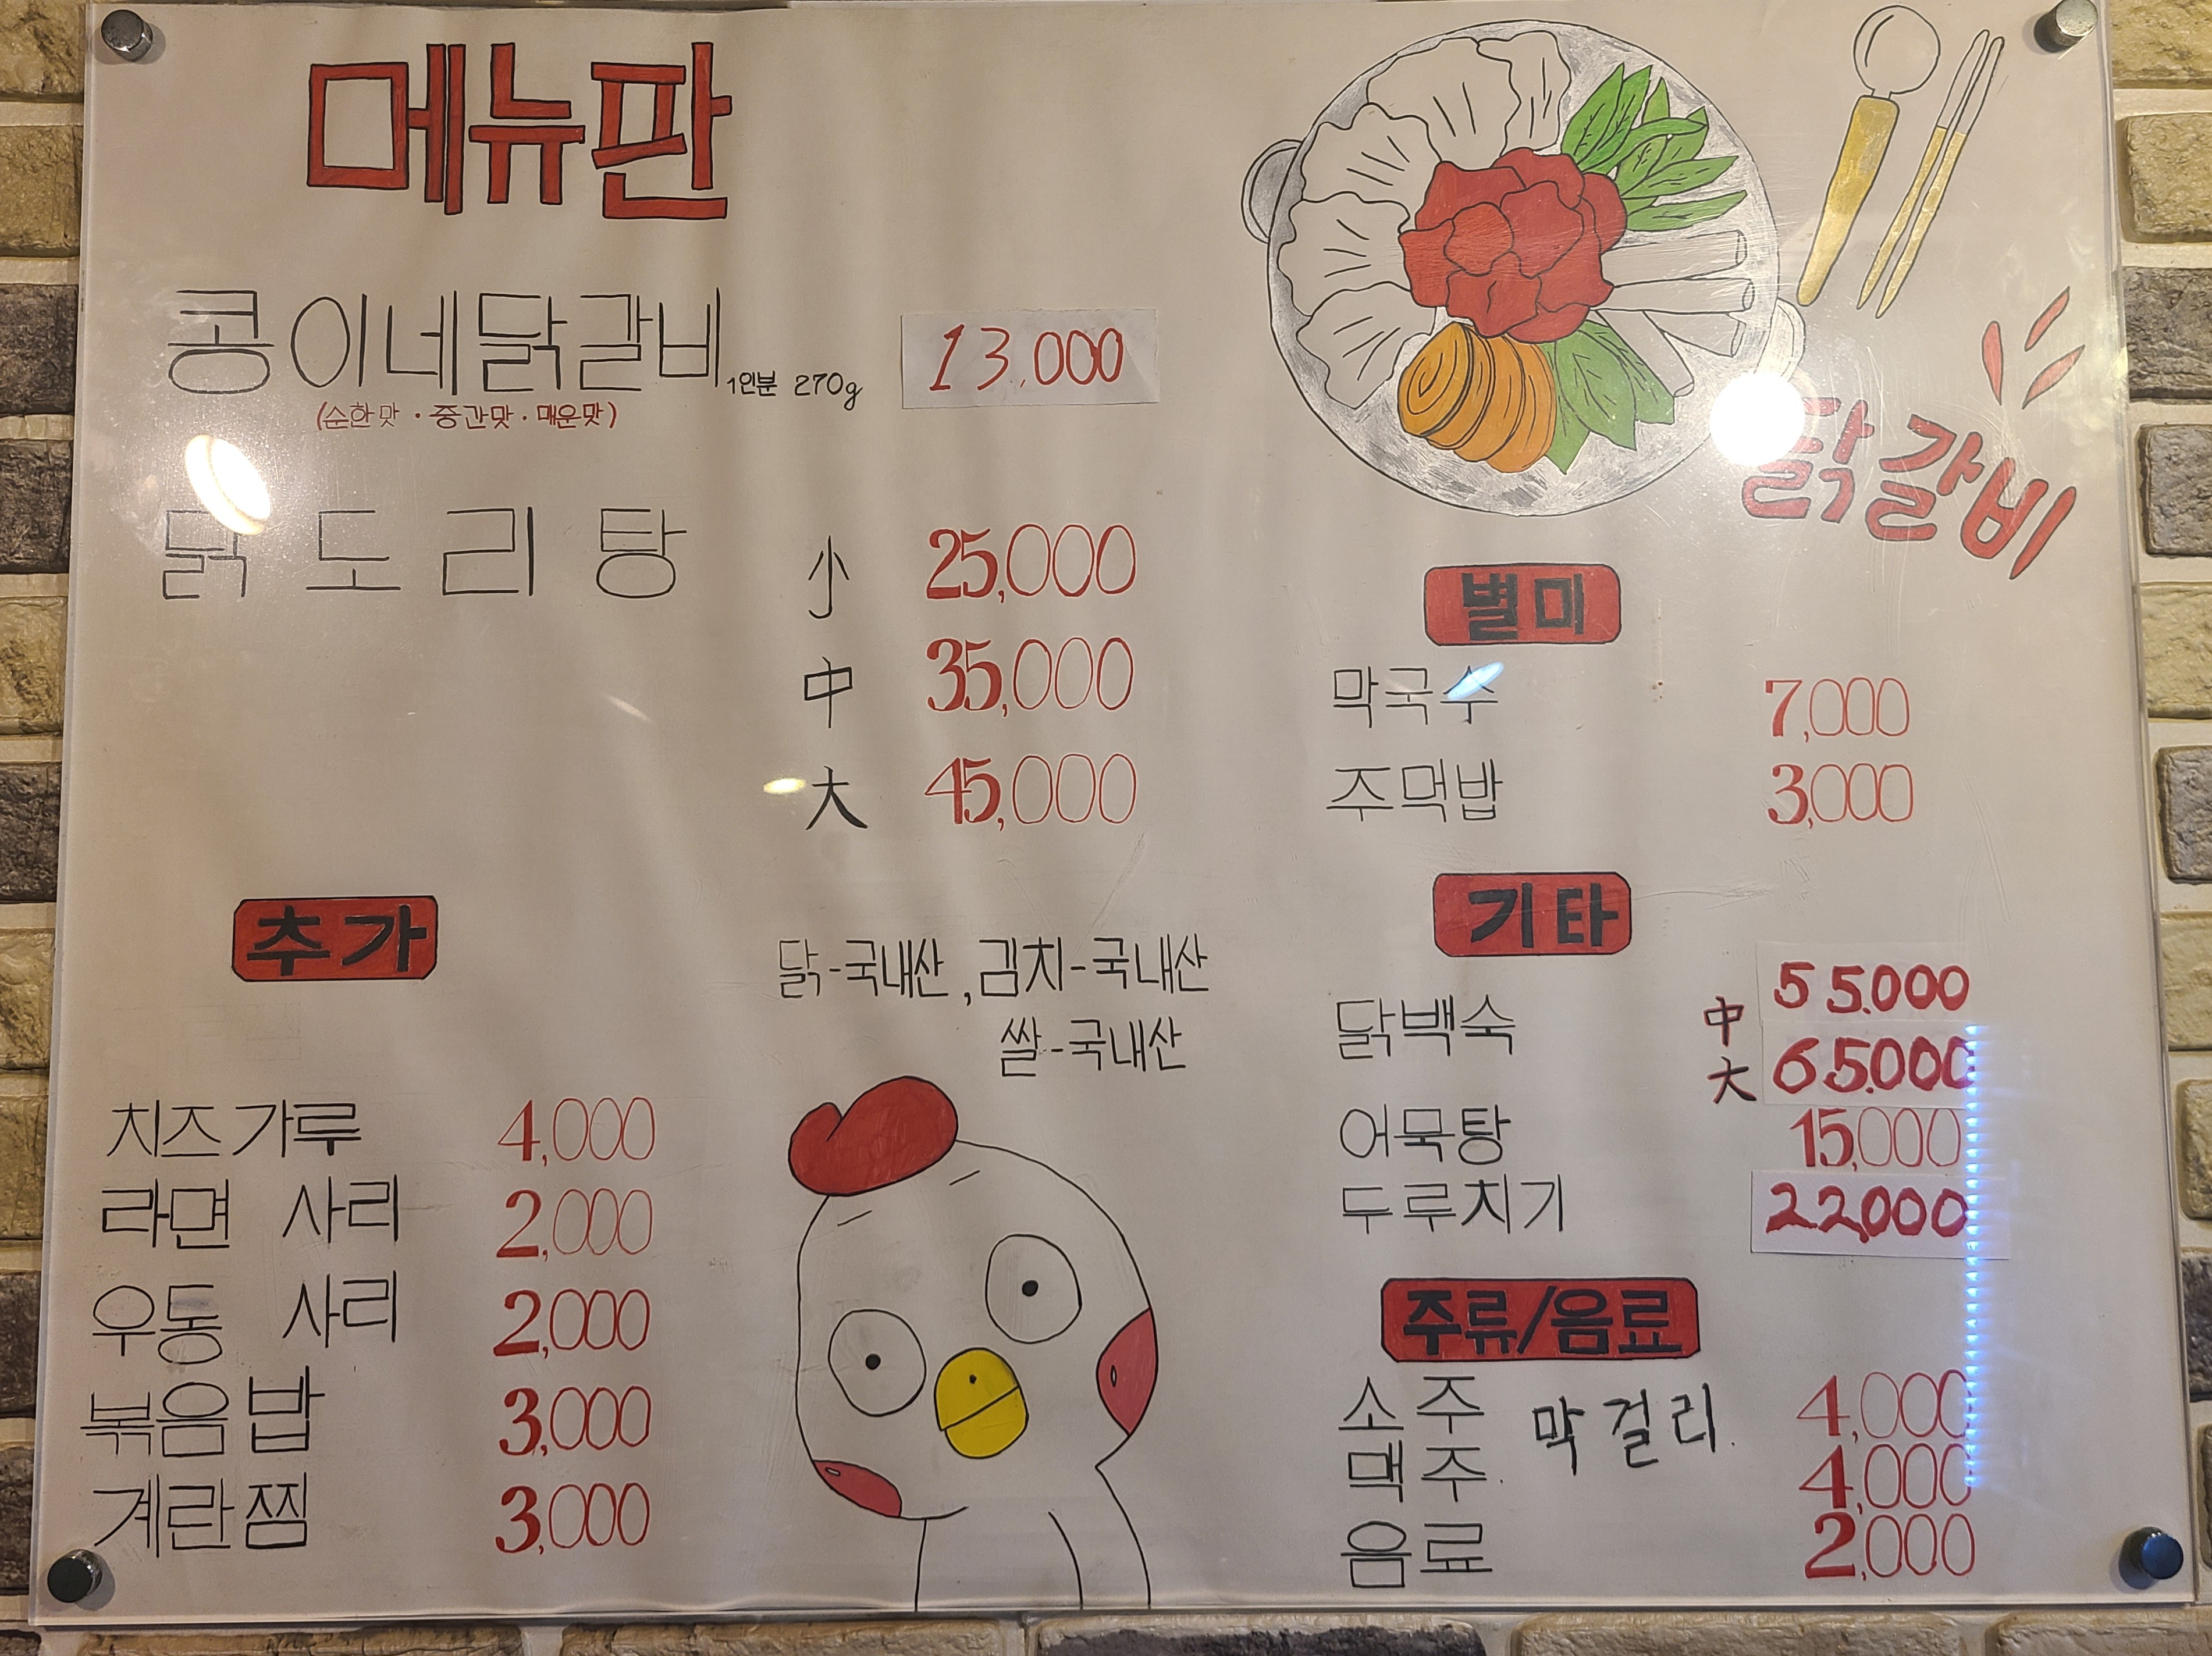 메뉴판
콩이네닭갈비 1인분 270g 13,000
(순한맛 · 중간맛 · 매운맛)
닭도리탕 小 25,000
中 35,000
大 45,000
닭갈비
별미
막국수 7,000
주먹밥 3,000
추가
치즈가루 4,000
라면 사리 2,000
우동 사리 2,000
볶음밥 3,000
계란찜 3,000
닭-국내산, 김치-국내산
쌀-국내산
기타
닭백숙 中 55.000
大 65.000
어묵탕 15,000
두루치기 22,000
주류/음료
소주 막걸리 4,000
맥주 4,000
음료 2,000